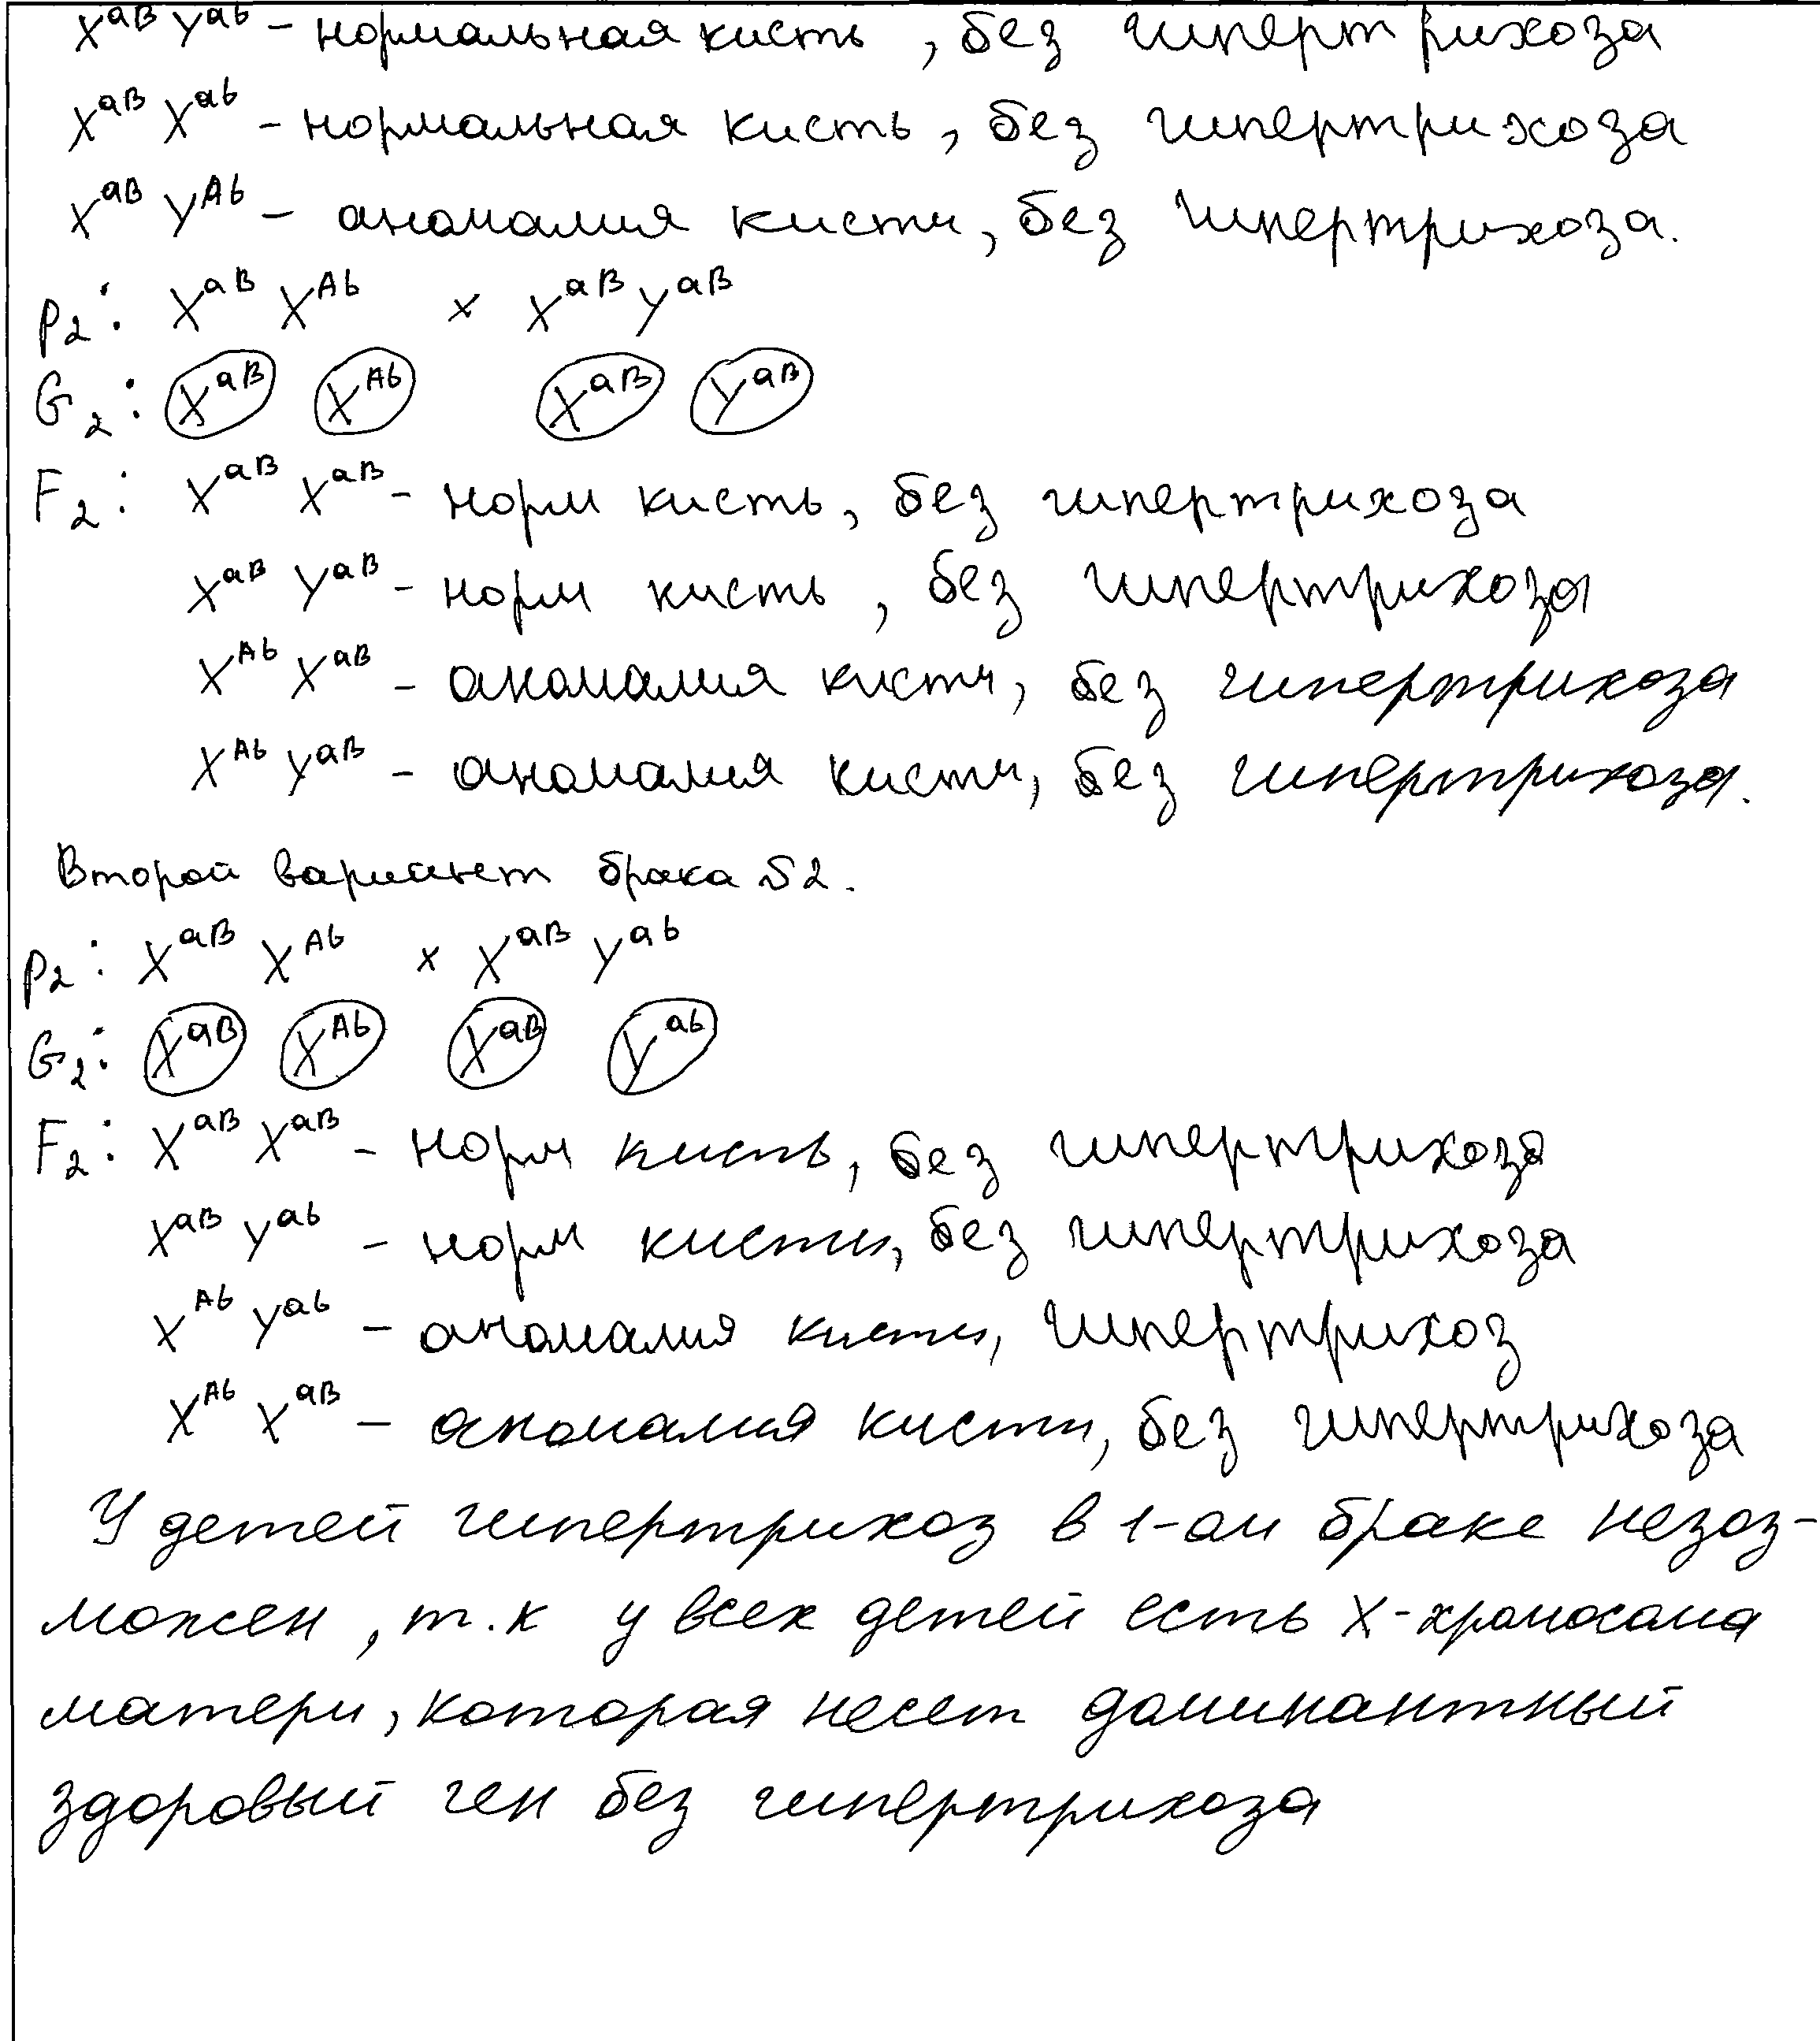 X^aB Y^ab – нормальная кисть, без гипертрихоза
X^aB X^ab – нормальная кисть, без гипертрихоза
X^aB Y^Ab – аномалия кисти, без гипертрихоза.
P₂: X^aB X^Ab × X^aB Y^aB
G₂: X^aB X^Ab X^aB Y^aB
F₂: X^aB X^aB – норм кисть, без гипертрихоза
X^aB Y^aB – норм кисть, без гипертрихоза
X^Ab X^aB – аномалия кисти, без гипертрихоза
X^Ab Y^aB – аномалия кисти, без гипертрихоза.
Второй вариант брака №2.
P₂: X^aB X^Ab × X^aB Y^ab
G₂: X^aB X^Ab X^aB Y^ab
F₂: X^aB X^aB – норм кисть, без гипертрихоза
X^aB Y^ab – норм кисти, без гипертрихоза
X^Ab Y^ab – аномалия кисти, гипертрихоз
X^Ab X^aB – аномалия кисти, без гипертрихоза
У детей гипертрихоз в 1-ом браке невоз-
можен, т.к у всех детей есть X-хромосома
матери, которая несет доминантный
здоровый ген без гипертрихоза